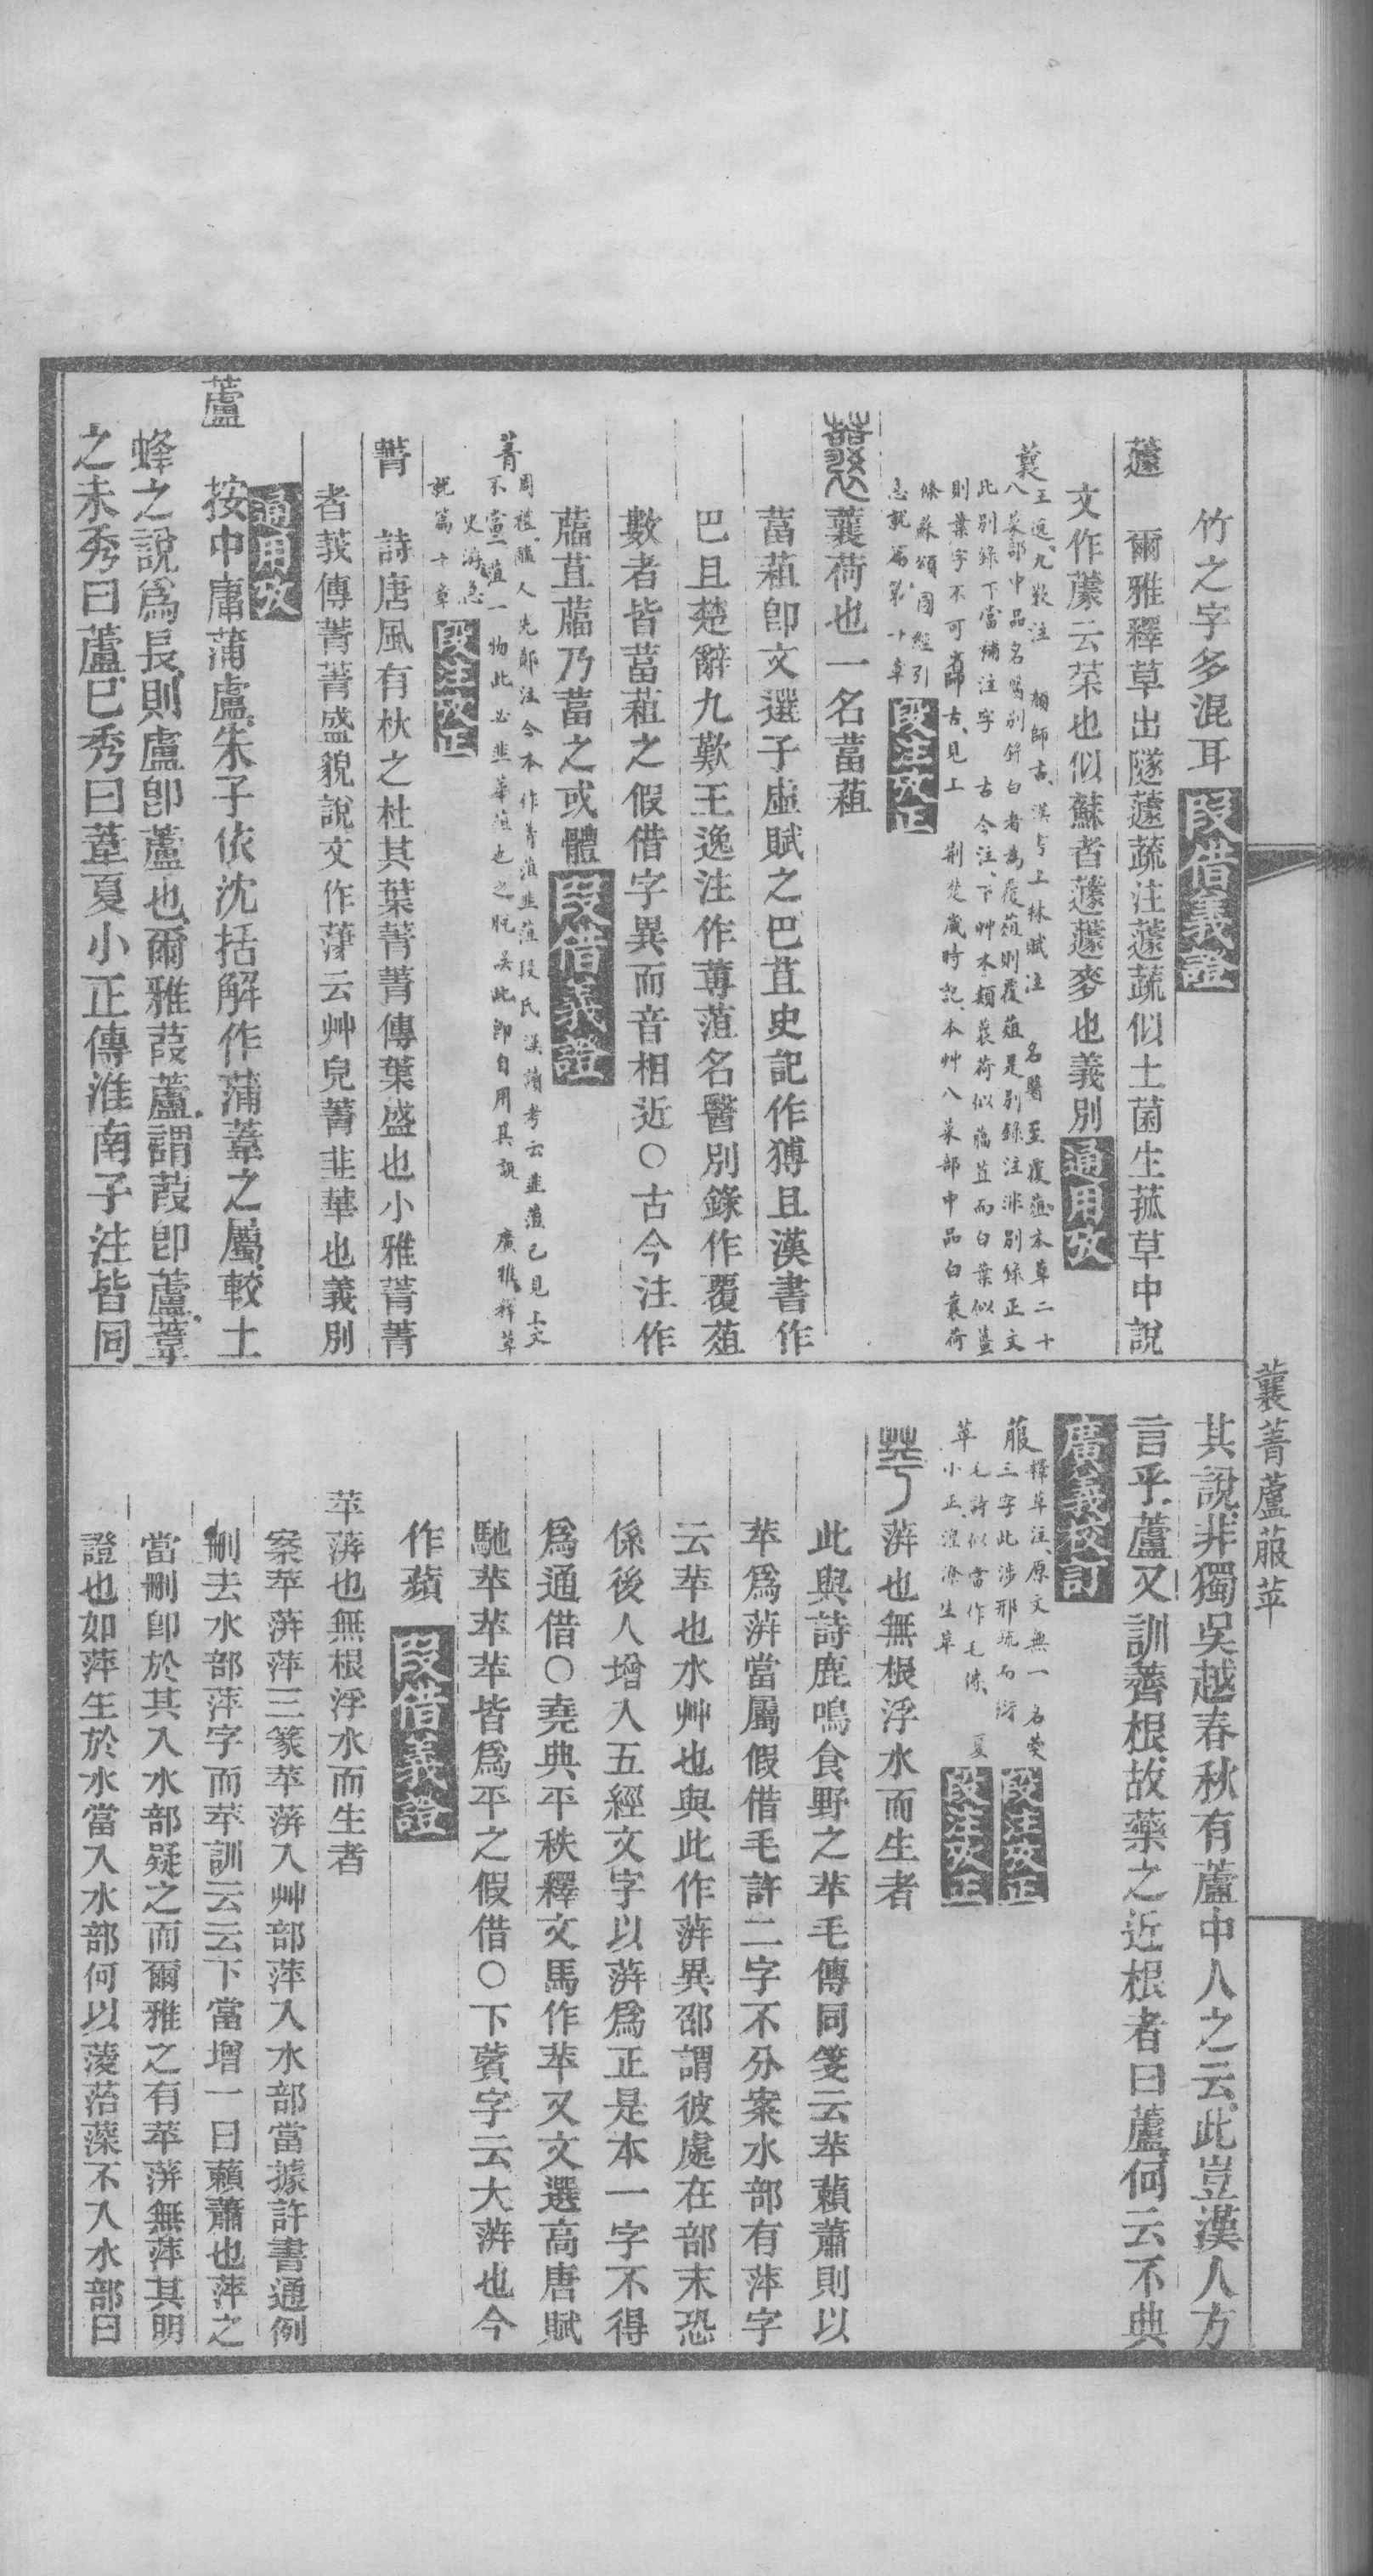 竹之字多混耳 段借義證
蘧 爾雅釋草出隧蘧蔬注蘧蔬似土菌生菰草中說
文作蘧云菜也似蘇者蘧蘧麥也義別 通用攷
蘘 王逸九歎注 顏師古漢書上林賦注 名醫至覆葅本草二十
八菜部中品名醫別錄白者為覆葅則覆葅是別錄注非別錄正文
此別錄下當補注字 古今注下艸木類蘘荷似䕅苴而白葉似薑
則葉字不可省 師古見上 荊楚歲時記本艸八菜部中品白蘘荷
條蘇頌圖經引
急就篇第十章 段注攷正
蘘荷也一名葍蒩
葍蒩即文選子虛賦之巴苴史記作猼且漢書作
巴且楚辭九歎王逸注作蓴菹名醫別錄作覆葅
數者皆葍蒩之假借字異而音相近○古今注作
䕅苴䕅乃葍之或體 段借義證
菁 周禮醢人先鄭注今本作菁菹韭菹段氏漢讀考云韭菹已見上文
不當一菹一物此必韭華菹也之脫吳此即自用其說 廣雅釋草
史游急
就篇十章 段注攷正
菁 詩唐風有杕之杜其葉菁菁傳葉盛也小雅菁菁
者莪傳菁菁盛貌說文作䓸云艸皃菁韭華也義別
通用攷
蘆 按中庸蒲盧朱子依沈括解作蒲葦之屬較土
蜂之說爲長則盧卽蘆也爾雅葭蘆謂葭卽蘆葦
之未秀曰蘆已秀曰葦夏小正傳淮南子注皆同
蘘菁蘆菔苹
其說非獨吳越春秋有蘆中人之云此豈漢人方
言乎蘆又訓薺根故藥之近根者曰蘆何云不典
廣義校訂
菔 釋草注原文無一名葖
三字此涉邢疏而衍 段注攷正
苹 毛詩似當作毛傳夏
小正湟潦生苹 段注攷正
蓱也無根浮水而生者
此與詩鹿鳴食野之苹毛傳同箋云苹藾蕭則以
苹爲蓱當屬假借毛許二字不分案水部有萍字
云苹也水艸也與此作蓱異邵謂彼處在部末恐
係後人增入五經文字以蓱爲正是本一字不得
爲通借○堯典平秩釋文馬作苹又文選高唐賦
馳苹苹苹皆爲平之假借○下薲字云大蓱也今
作蘋 段借義證
苹蓱也無根浮水而生者
案苹蓱萍三篆苹蓱入艸部萍入水部當據許書通例
刪去水部萍字而苹訓云云下當增一曰藾蕭也萍之
當刪卽於其入水部疑之而爾雅之有苹蓱無萍其明
證也如萍生於水當入水部何以蔆菭藻不入水部曰